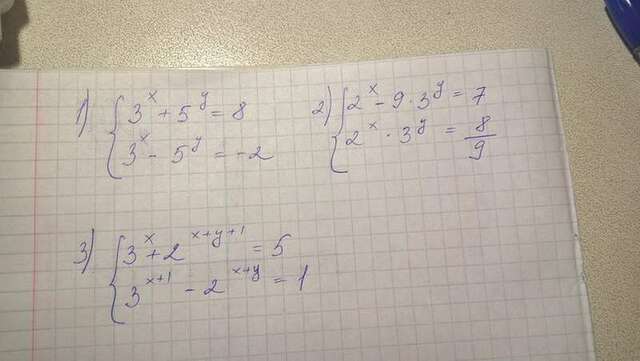 1) { 3^x + 5^y = 8
3^x - 5^y = -2
2) { 2^x - 9 · 3^y = 7
2^x · 3^y = 8/9
3) { 3^x + 2^{x+y+1} = 5
3^{x+1} - 2^{x+y} = 1